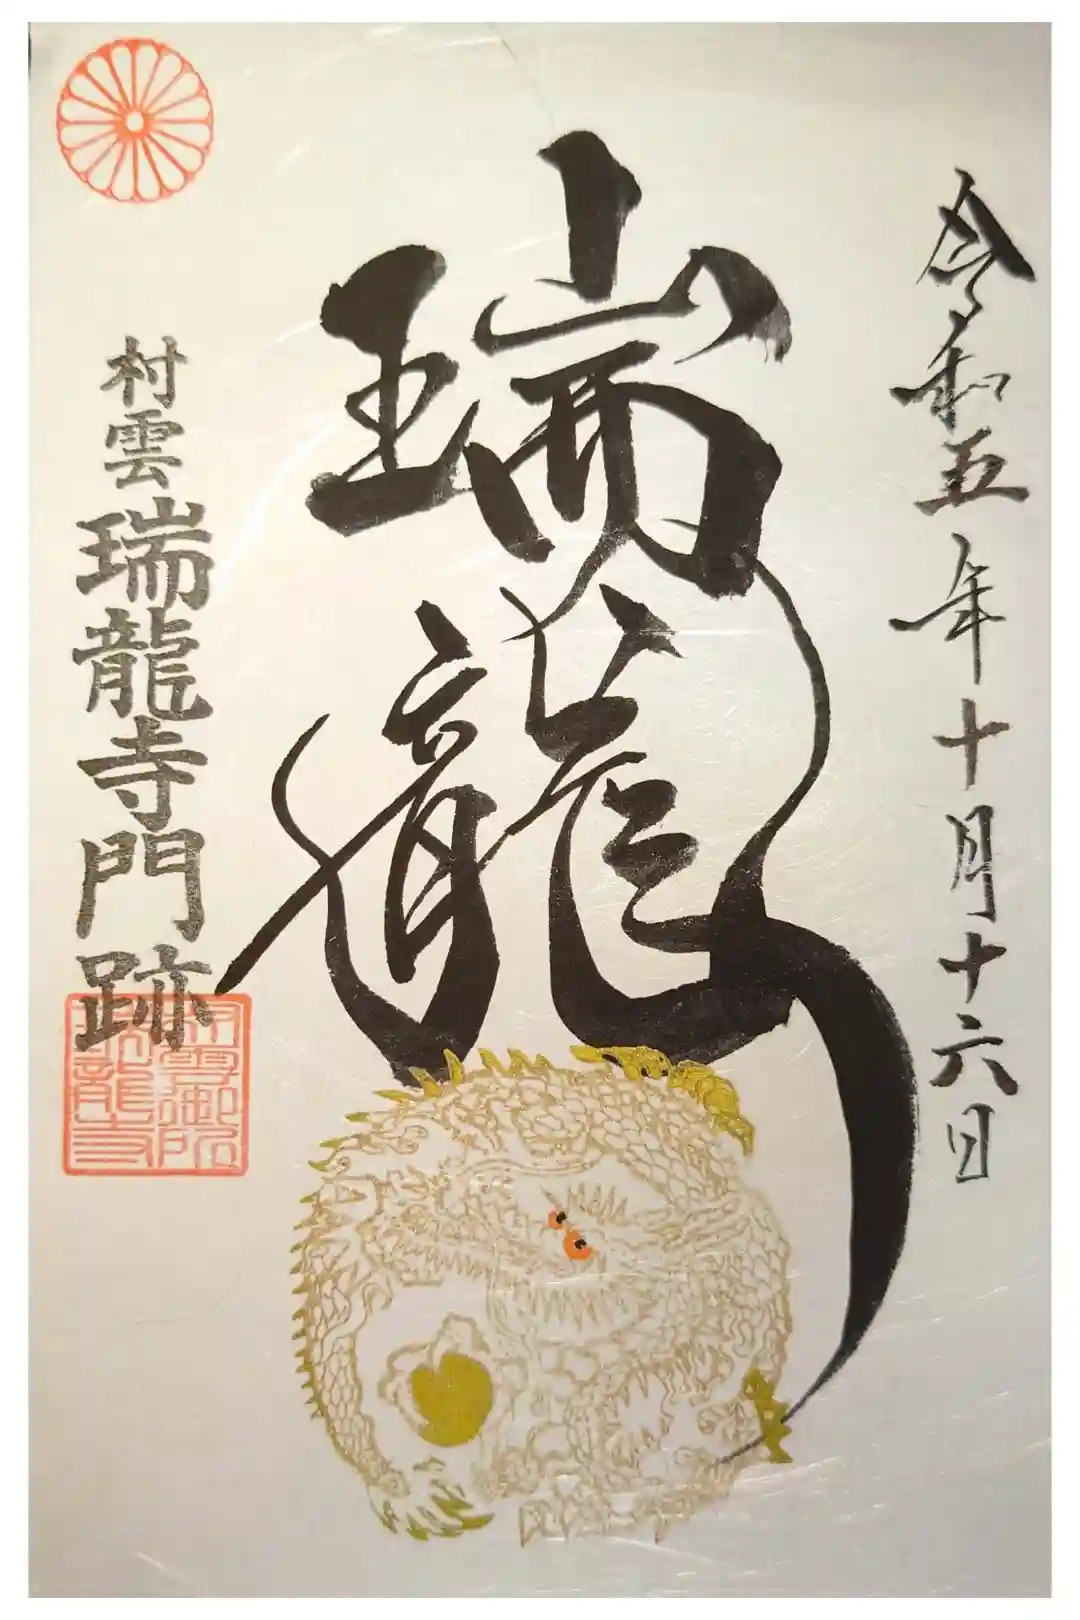 令和五年十月十六日
瑞龍
村雲瑞龍寺門跡
村雲御所
瑞龍寺